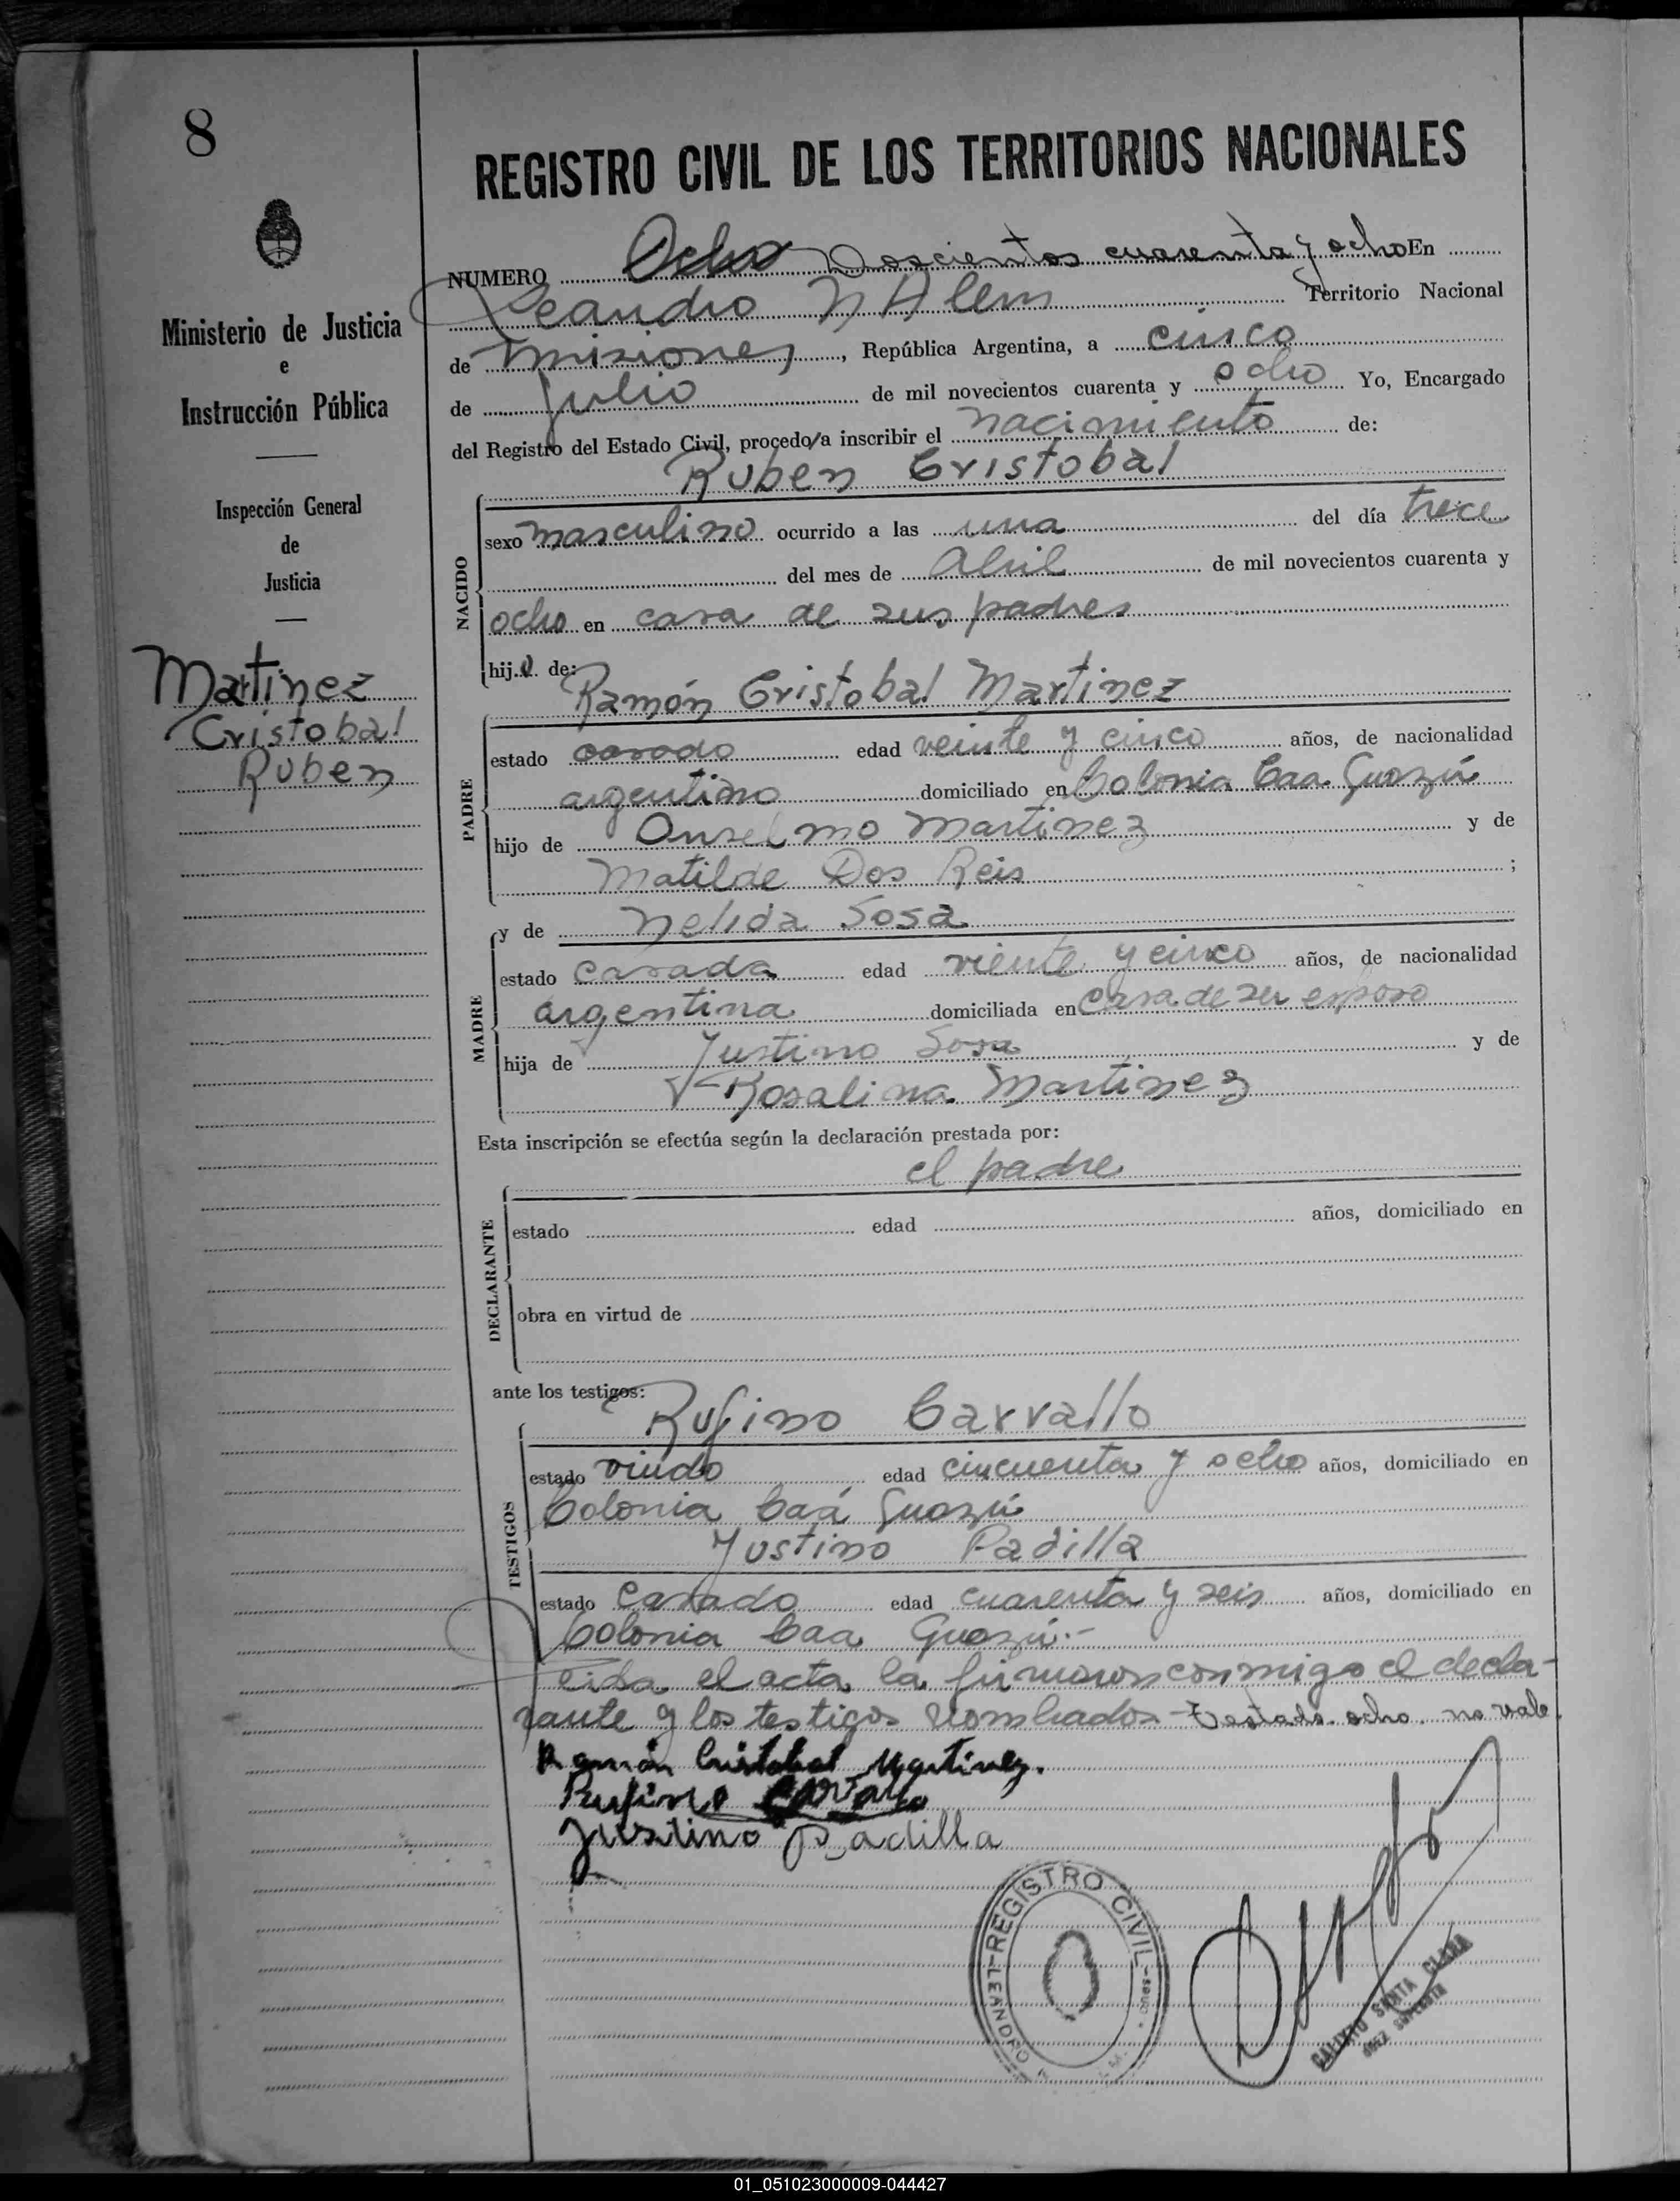 8
Ministerio de Justicia
e
Instrucción Pública
Inspección General
de
Justicia
Martinez
Cristobal
Ruben
REGISTRO CIVIL DE LOS TERRITORIOS NACIONALES
NUMERO Ocho Doscientos cuarenta y ocho En
Leandro N Alem Territorio Nacional
de Misiones, República Argentina, a cinco
de Julio de mil novecientos cuarenta y ocho Yo, Encargado
del Registro del Estado Civil, procedo a inscribir el nacimiento de:
Ruben Cristobal
NACIDO
sexo masculino ocurrido a las una del día trece
del mes de Abril de mil novecientos cuarenta y
ocho en casa de sus padres
hijo de:
Ramón Cristobal Martinez
PADRE
estado casado edad veinte y cinco años, de nacionalidad
argentino domiciliado en Colonia Caa Guazú
hijo de Anselmo Martinez y de
Matilde Dos Reis ;
MADRE
y de Nelida Sosa
estado casada edad viente y cinco años, de nacionalidad
argentina domiciliada en casa de su esposo
hija de Justino Sosa y de
Rosalina Martinez
Esta inscripción se efectúa según la declaración prestada por:
el padre
DECLARANTE
estado edad años, domiciliado en
obra en virtud de
ante los testigos:
Rufino Carvallo
TESTIGOS
estado viudo edad cincuenta y ocho años, domiciliado en
Colonia Caá Guazú
Justino Padilla
estado casado edad cuarenta y seis años, domiciliado en
Colonia Caa Guazú.-
Leida el acta la firmaron conmigo el decla-
rante y los testigos nombrados - Testado ocho no vale.
Ramón Cristobal Martinez.
Rufino Carvallo
Justino Padilla
REGISTRO CIVIL
LEANDRO
CALIXTO SANTA CLARA
JUEZ SUPLENTE
01_051023000009-044427